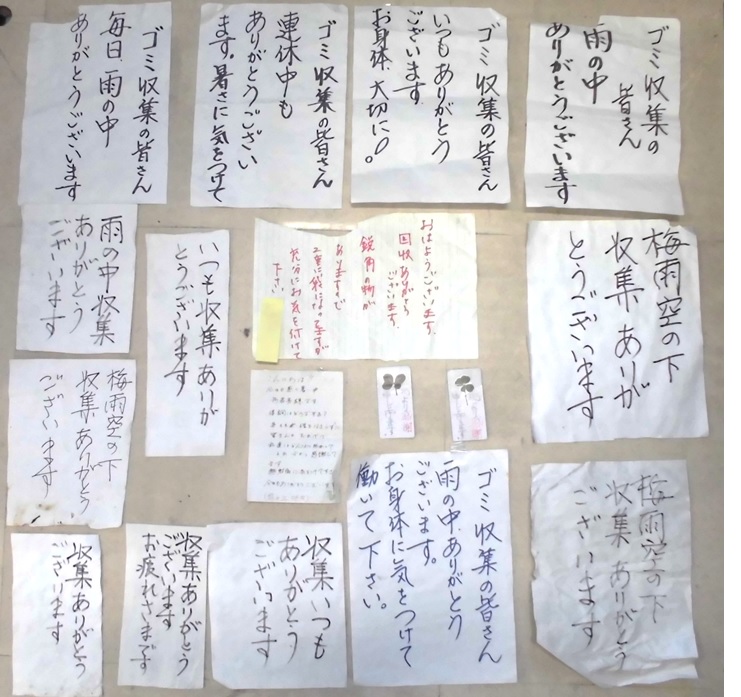 ゴミ収集の皆さん
毎日雨の中
ありがとうございます
ゴミ収集の皆さん
連休中も
ありがとうござい
ます。暑さに気をつけて
ゴミ収集の皆さん
いつもありがとう
ございます
お身体大切に。
ゴミ収集の
皆さん
雨の中
ありがとうございます
雨の中収集
ありがとう
ございます
いつも収集ありが
とうございます
おはようございます。
回収ありがとう
ございます。
鋭角の物が
ありますので
2重に袋になってますが
充分にお気を付けて
下さい
梅雨空の下
収集ありが
とうございます
梅雨空の下
収集ありがとう
ございます
収集ありがとう
ございます
収集ありがとう
ございます
お疲れさまです
収集いつも
ありがとう
ございます
ゴミ収集の皆さん
雨の中ありがとう
ございます。
お身体に気をつけて
働いて下さい。
梅雨空の下
収集ありがとう
ございます